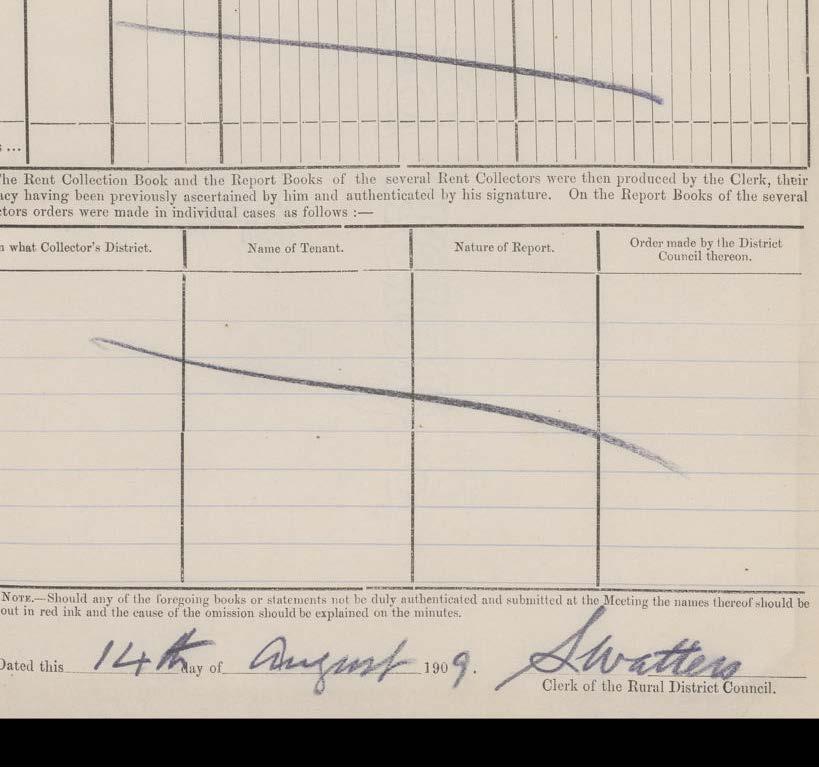 ...
The Rent Collection Book and the Report Books of the several Rent Collectors were then produced by the Clerk, their
acy having been previously ascertained by him and authenticated by his signature. On the Report Books of the several
ctors orders were made in individual cases as follows :—
n what Collector's District. Name of Tenant. Nature of Report. Order made by the District
Council thereon.
NOTE.—Should any of the foregoing books or statements not be duly authenticated and submitted at the Meeting the names thereof should be
out in red ink and the cause of the omission should be explained on the minutes.
Dated this 14th day of August 1909. S Watters
Clerk of the Rural District Council.